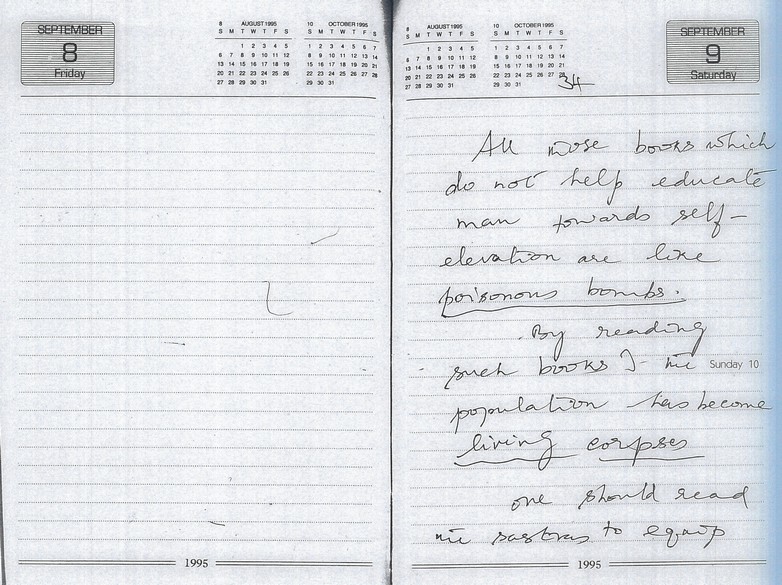 SEPTEMBER
8
Friday
8 AUGUST 1995
S M T W T F S
1 2 3 4 5
6 7 8 9 10 11 12
13 14 15 16 17 18 19
20 21 22 23 24 25 26
27 28 29 30 31
10 OCTOBER 1995
S M T W T F S
1 2 3 4 5 6 7
8 9 10 11 12 13 14
15 16 17 18 19 20 21
22 23 24 25 26 27 28
29 30 31
1995
8 AUGUST 1995
S M T W T F S
1 2 3 4 5
6 7 8 9 10 11 12
13 14 15 16 17 18 19
20 21 22 23 24 25 26
27 28 29 30 31
10 OCTOBER 1995
S M T W T F S
1 2 3 4 5 6 7
8 9 10 11 12 13 14
15 16 17 18 19 20 21
22 23 24 25 26 27 28
29 30 31
34
SEPTEMBER
9
Saturday
All those books which
do not help educate
man towards self-
elevation are like
poisonous bombs.
By reading
such books the
Sunday 10
population has become
living corpses
one should read
the sastras to equip
1995